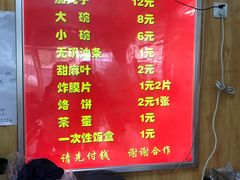 12元
大碗 8元
小碗 6元
无矾油条 1元
甜麻叶 2元
炸膜片 1元2片
烙饼 2元1张
茶蛋 1元
一次性饭盒 1元
请先付钱 谢谢合作